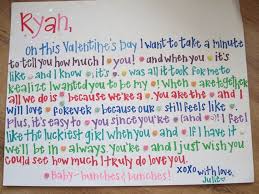 Ryan,
on this Valentine's Day I want to take a minute
to tell you how much I you! and when you it's
like and I know it's was all it took for me to
realize I wanted you to be my When are together
all we do is because we're a You are the and I
will love forever because our still feels like
Plus, it's easy to since you're the and I feel
like the luckiest girl when you and If I have it
we'll be in always. You're and I just wish you
could see how much I truly do love you.
baby-bunches & bunches!
xoxo
with love,
Julie